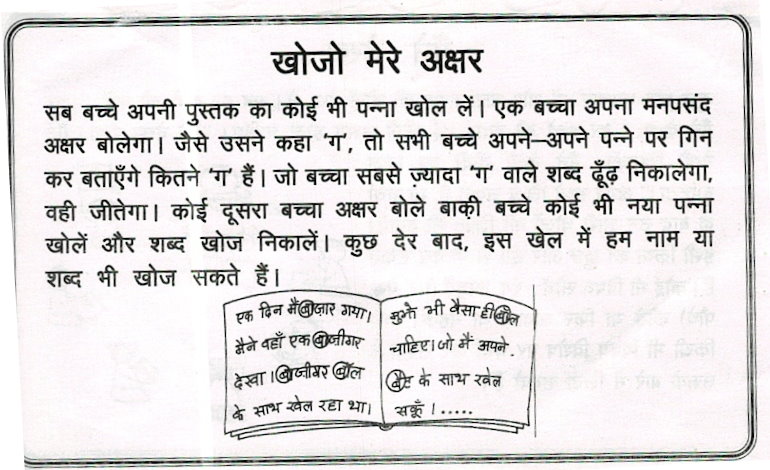 खोजो मेरे अक्षर
सब बच्चे अपनी पुस्तक का कोई भी पन्ना खोल लें। एक बच्चा अपना मनपसंद
अक्षर बोलेगा। जैसे उसने कहा ‘ग’, तो सभी बच्चे अपने–अपने पन्ने पर गिन
कर बताएँगे कितने ‘ग’ हैं। जो बच्चा सबसे ज़्यादा ‘ग’ वाले शब्द ढूँढ़ निकालेगा,
वही जीतेगा। कोई दूसरा बच्चा अक्षर बोले बाक़ी बच्चे कोई भी नया पन्ना
खोलें और शब्द खोज निकालें। कुछ देर बाद, इस खेल में हम नाम या
शब्द भी खोज सकते हैं।
एक दिन मैं बाज़ार गया।
मैने वहाँ एक बाजीगर
देखा। बाजीगर बॉल
के साथ खेल रहा था।
मुझे भी वैसा ही बॉल
चाहिए। जो मैं अपने
बैट के साथ खेल
सकूँ।.....